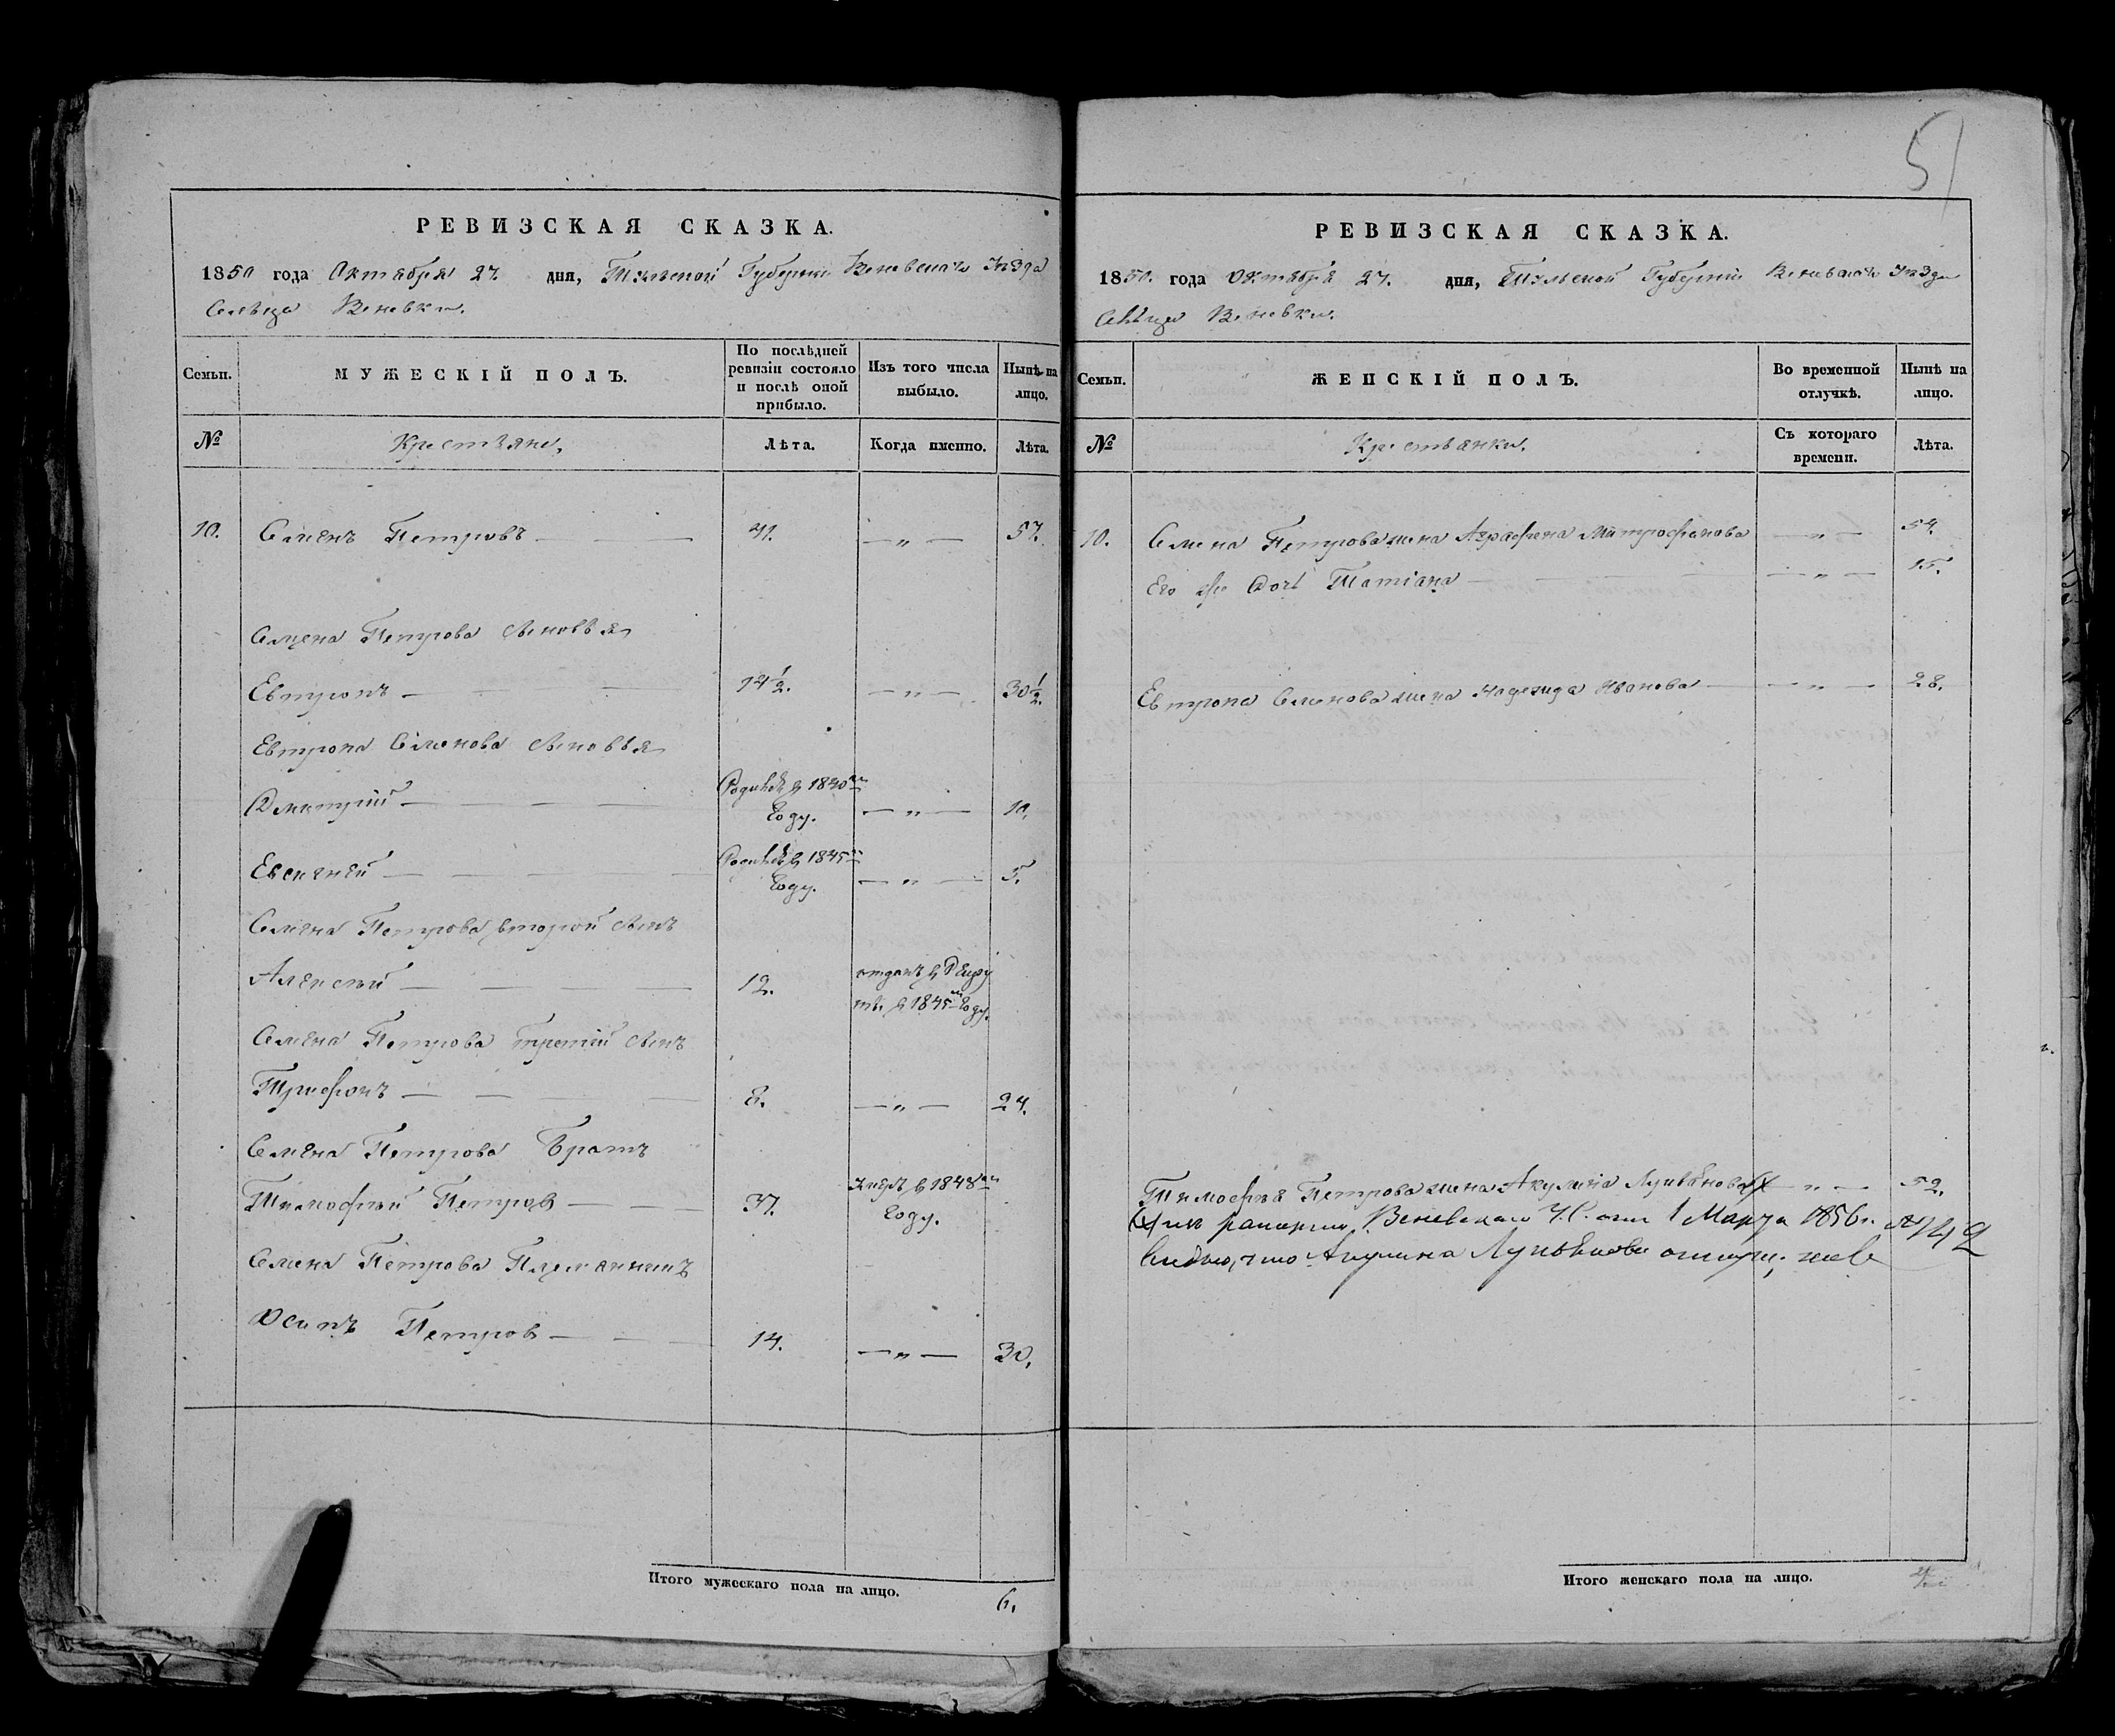 51
РЕВИЗСКАЯ СКАЗКА.
1850 года Октября 27 дня, Тульской Губернии Веневскаго Уѣзда
Сельца Веневки.
Семьи. МУЖЕСКІЙ ПОЛЪ. По послѣдней ревизіи состояло и послѣ оной прибыло. Изъ того числа выбыло. Нынѣ на лицо.
№ Крестьяне. Лѣта. Когда именно. Лѣта.
10. Семенъ Петровъ — — 41. — „ — 57.
Семена Петрова сыновья
Евтропъ — — — 14 1/2. — „ — 30 1/2.
Евтропа Семенова сыновья
Дмитрій — — — Родился в 1840м Году. — „ — 10.
Евсигней — — — Родился в 1845м Году. — „ — 5.
Семена Петрова второй сынъ
Алексѣй — — — 12. отданъ в Рекру
ты в 1845м Году.
Семена Петрова третій сынъ
Трифонъ — — — 8. — „ — 24.
Семена Петрова Братъ
Тимофей Петров — — — 37. умеръ в 1848м Году.
Семена Петрова Племянникъ
Осипъ Петров — — — 14. — „ — 30.
Итого мужескаго пола на лицо. 6.
РЕВИЗСКАЯ СКАЗКА.
1850. года Октября 27. дня, Тульской Губерніи Веневскаго Уѣзда
Сельца Веневки.
Семьи. ЖЕНСКІЙ ПОЛЪ. Во временной отлучкѣ. Нынѣ на лицо.
№ Крестьянки. Съ котораго времени. Лѣта.
10. Семена Петрова жена Аграфена Митрофанова — „ — 54.
Его же Дочь Татіана — — — — „ — 15.
Евтропа Семенова жена Надежда Иванова — — „ — 28.
Тимофея Петрова жена Акулина Лукьянова — „ — 52.
рапорта Веневскаго У.С. от 1 Марта 1856 г. №
видно, что Акулина Лукьянова
Итого женскаго пола на лицо.